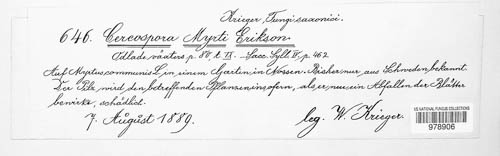 Krieger, Fungi saxonici.
646. Cercospora Myrti Erikson.
Odlade växters p. 80, t. IX. — Sacc. Syll. IV, p. 462
Auf Myrtus communis L. in einem Garten in Nossen. Bisher nur aus Schweden bekannt.
Der Pilz wird den betreffenden Pflanzen insofern, als er nur ein Abfallen der Blätter
bewirkt, schädlich.
7. August 1889. leg. W. Krieger.
US NATIONAL FUNGUS COLLECTIONS
978906